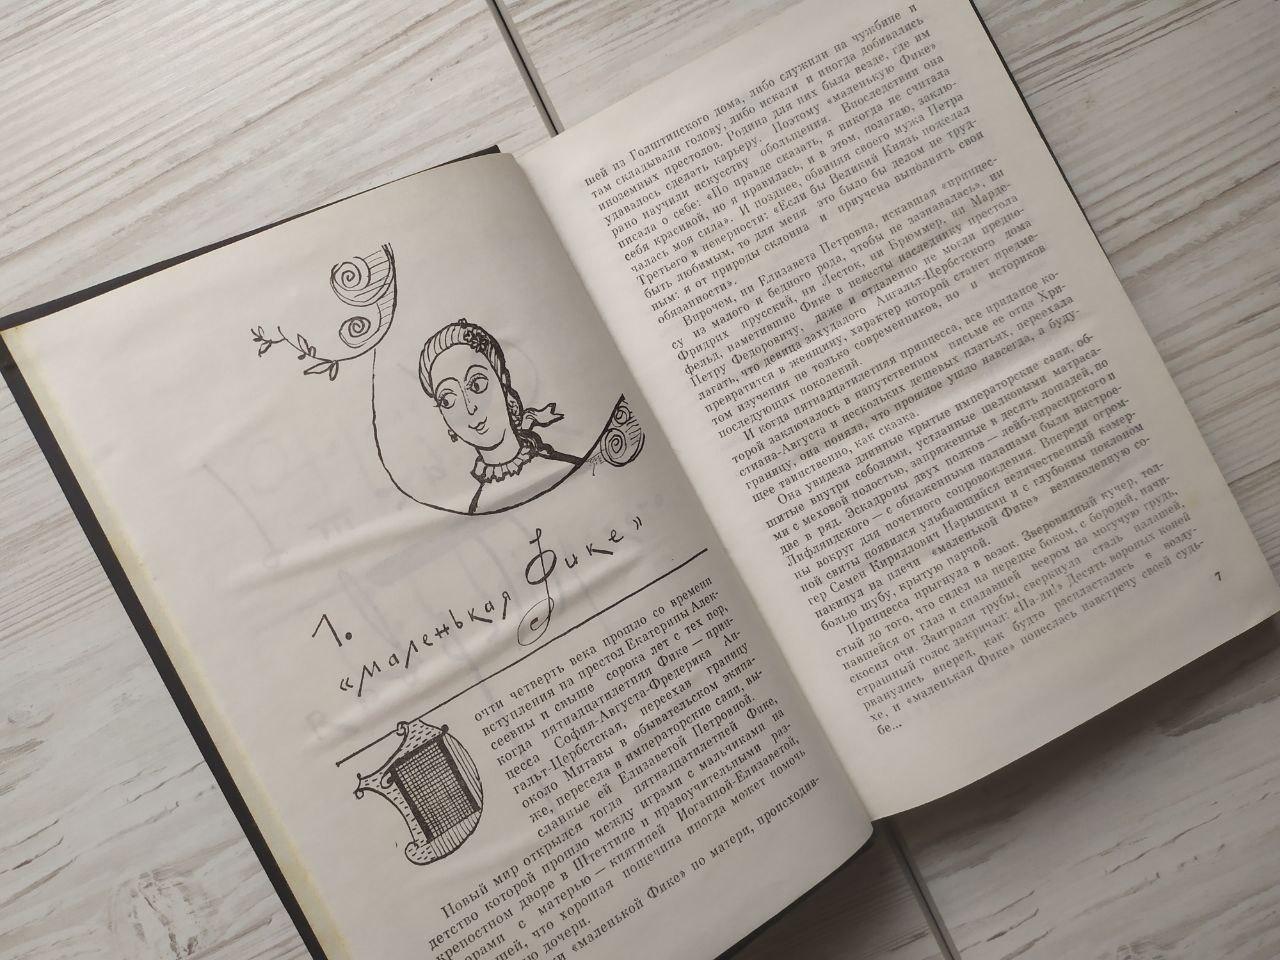 1.
«маленькая Фике»
очти четверть века прошло со времени
вступления на престол Екатерины Алек-
сеевны и свыше сорока лет с тех пор,
когда пятнадцатилетняя Фике — прин-
цесса София-Августа-Фредерика Ан-
гальт-Цербстская, переехав границу
около Митавы в обывательском экипа-
же, пересела в императорские сани, вы-
сланные ей Елизаветой Петровной.
Новый мир открылся тогда пятнадцатилетней Фике,
детство которой прошло между играми с мальчиками на
крепостном дворе в Штеттине и нравоучительными раз-
орами с матерью — княгиней Иоганной-Елизаветой,
шей, что хорошая пощечина иногда может помочь
ю дочери.
и «маленькой Фике» по матери, происходив-
шей из Голштинского дома, либо служили на чужбине и
там складывали голову, либо искали и иногда добивались
иноземных престолов. Родина для них была везде, где им
удавалось сделать карьеру. Поэтому «маленькую Фике»
рано научили искусству обольщения. Впоследствии она
писала о себе: «По правде сказать, я никогда не считала
себя красивой, но я нравилась, и в этом, полагаю, заклю-
чалась моя сила». И позднее, обвиняя своего мужа Петра
Третьего в неверности: «Если бы Великий Князь пожелал
быть любимым, то для меня это было бы делом не труд-
ным: я от природы склонна и приучена выполнять свои
обязанности».
Впрочем, ни Елизавета Петровна, искавшая «принцес-
су из малого и бедного рода, чтобы не зазнавалась», ни
Фридрих прусский, ни Лесток, ни Брюммер, ни Марде-
фельд, наметившие Фике в невесты наследнику престола
Петру Федоровичу, даже и отдаленно не могли предпо-
лагать, что девица захудалого Ангальт-Цербстского дома
превратится в женщину, характер которой станет предме-
том изучения не только современников, но и историков
последующих поколений.
И когда пятнадцатилетняя принцесса, все приданое ко-
торой заключалось в напутственном письме ее отца Хри-
стиана-Августа и нескольких дешевых платьях, переехала
границу, она поняла, что прошлое ушло навсегда, а буду-
щее таинственно, как сказка.
Она увидела длинные крытые императорские сани, об-
шитые внутри соболями, устланные шелковыми матраса-
ми с меховой полостью, запряженные в десять лошадей, по
две в ряд. Эскадроны двух полков — лейб-кирасирского и
Лифляндского — с обнаженными палашами были выстрое-
ны вокруг для почетного сопровождения. Впереди огром-
ной свиты появился улыбающийся величественный камер-
гер Семен Кириллович Нарышкин и с глубоким поклоном
накинул на плечи «маленькой Фике» великолепную со-
болью шубу, крытую парчой.
Принцесса прыгнула в возок. Зверовидный кучер, тол-
стый до того, что сидел на передке боком, с бородой, начи-
навшейся от глаз и спадавшей веером на могучую грудь,
скосил очи. Заиграли трубы, сверкнула сталь палашей,
страшный голос закричал: «Па-ди!» Десять вороных коней
рванулись вперед, как будто распластались в возду-
хе, и «маленькая Фике» понеслась навстречу своей судь-
бе...
7